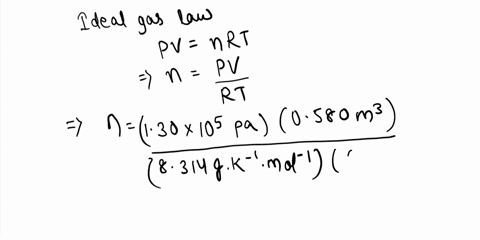 Ideal gas law
PV = nRT
⇒ n = PV/RT
⇒ n = (1.30 × 10⁵ Pa) (0.580 m³)
(8.314 J·K⁻¹·mol⁻¹) (